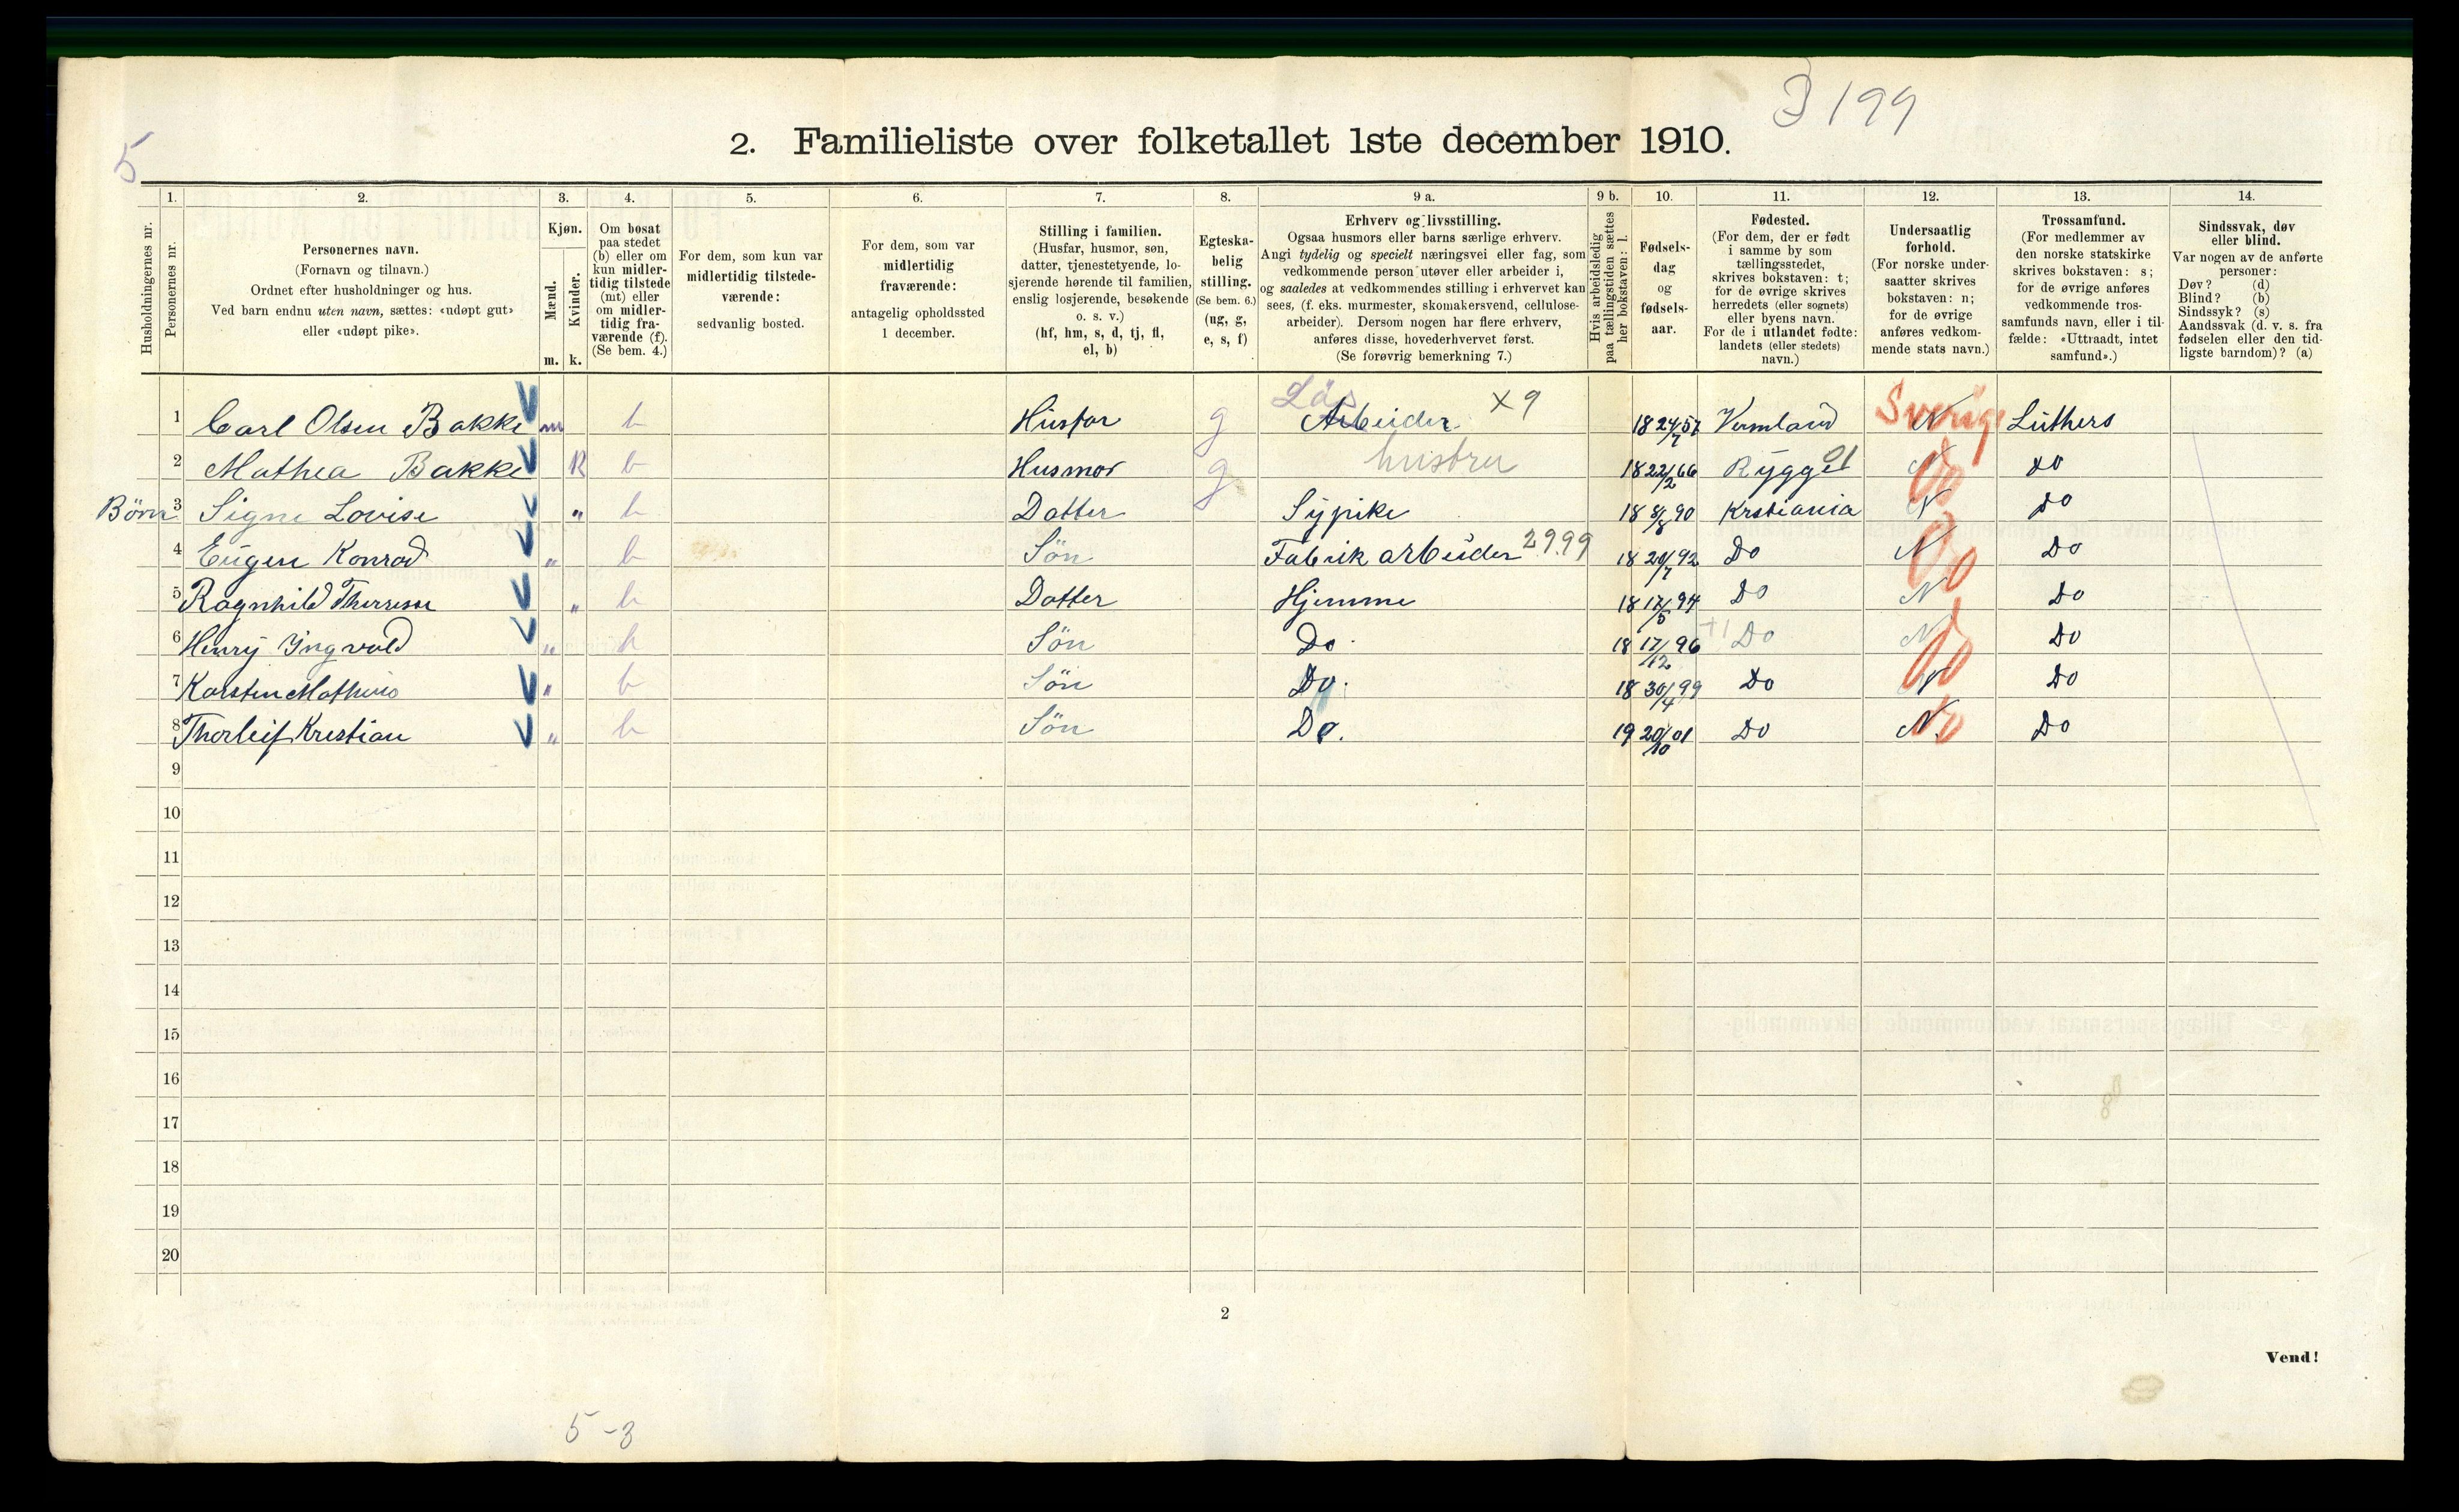 3199
5
2. Familieliste over folketallet 1ste december 1910.
Husholdningernes nr.
1. Personernes nr.
2. Personernes navn. (Fornavn og tilnavn.) Ordnet efter husholdninger og hus. Ved barn endnu uten navn, sættes: «udøpt gut» eller «udøpt pike».
3. Kjøn. Mænd. m. Kvinder. k.
4. Om bosat paa stedet (b) eller om kun midlertidig tilstede (mt) eller om midlertidig fraværende (f). (Se bem. 4.)
5. For dem, som kun var midlertidig tilstedeværende: sedvanlig bosted.
6. For dem, som var midlertidig fraværende: antagelig opholdssted 1 december.
7. Stilling i familien. (Husfar, husmor, søn, datter, tjenestetyende, losjerende hørende til familien, enslig losjerende, besøkende o. s. v.) (hf, hm, s, d, tj, fl, el, b)
8. Egteskabelig stilling. (Se bem. 6.) (ug, g, e, s, f)
9 a. Erhverv og livsstilling. Ogsaa husmors eller barns særlige erhverv. Angi tydelig og specielt næringsvei eller fag, som vedkommende person utøver eller arbeider i, og saaledes at vedkommendes stilling i erhvervet kan sees, (f. eks. murmester, skomakersvend, cellulosearbeider). Dersom nogen har flere erhverv, anføres disse, hovederhvervet først. (Se forøvrig bemerkning 7.)
9 b. Hvis arbeidsledig paa tællingstiden sættes her bokstaven: l.
10. Fødselsdag og fødselsaar.
11. Fødested. (For dem, der er født i samme by som tællingsstedet, skrives bokstaven: t; for de øvrige skrives herredets (eller sognets) eller byens navn. For de i utlandet fødte: landets (eller stedets) navn.)
12. Undersaatlig forhold. (For norske undersaatter skrives bokstaven: n; for de øvrige anføres vedkommende stats navn.)
13. Trossamfund. (For medlemmer av den norske statskirke skrives bokstaven: s; for de øvrige anføres vedkommende trossamfunds navn, eller i tilfælde: «Uttraadt, intet samfund».)
14. Sindssvak, døv eller blind. Var nogen av de anførte personer: Døv? (d) Blind? (b) Sindssyk? (s) Aandssvak (d. v. s. fra fødselen eller den tidligste barndom)? (a)
1 Carl Olsen Bakke m b Husfar g Løs Arbeider x9 18 24/7 57 Vermland N Sverige Luthers
2 Mathea Bakke K b Husmor g hustru 18 22/2 66 Rygge 01 N Do Do
Börn 3 Signe Lovise " b Datter Sypike 18 8/8 90 Krstiania N Do
4 Eugen Konrad " b Sön Fabrik arbeider 29.99 18 20/7 92 Do N Do Do
5 Ragnhild Therese " b Datter Hjemme 18 17/5 94 Do N Do
6 Henry Yngvald " b Sön Do 18 17/12 96 Do N Do Do
7 Karsten Mathius " b Sön Do. 18 30/4 99 Do N Do
8 Thorleif Krestian " b Sön Do. 19 20/10 01 Do N. Do Do
9
10
11
12
13
14
15
16
17
18
19
20
2
Vend!
5-3